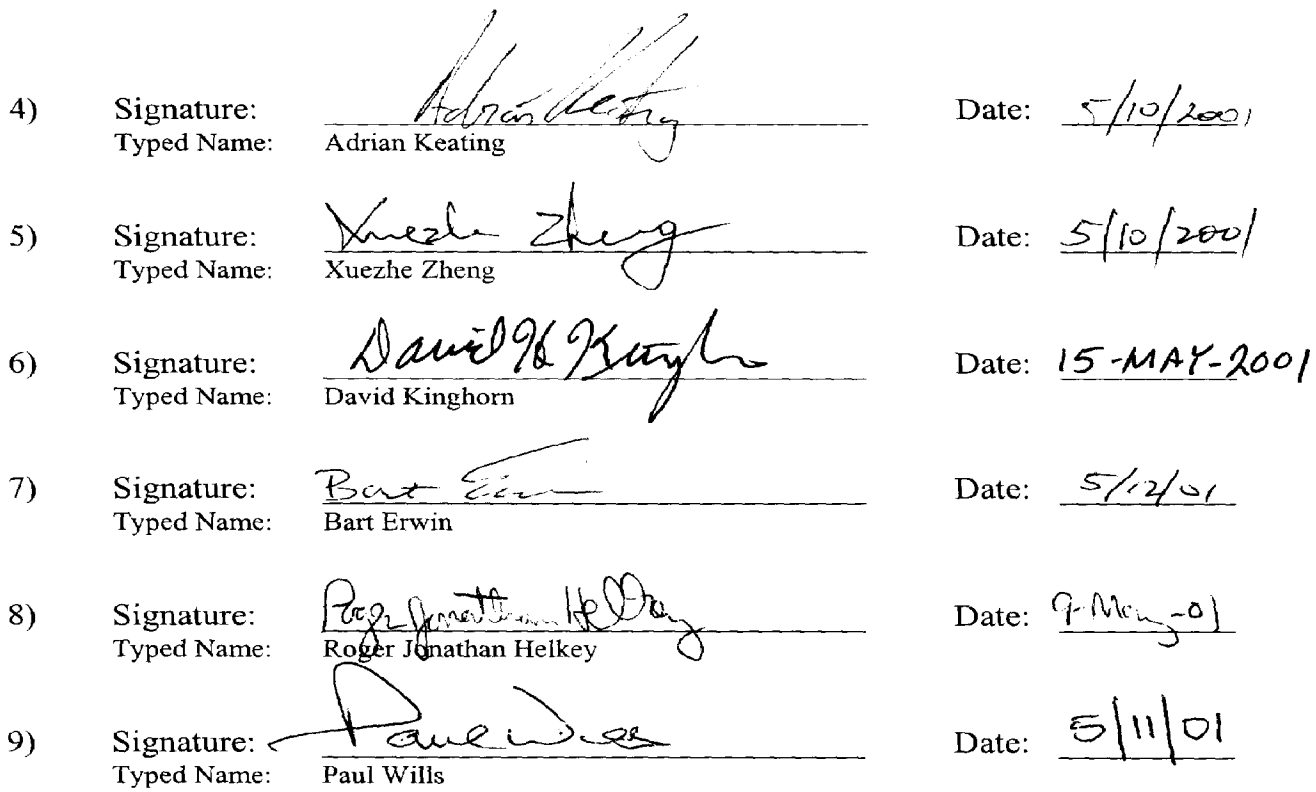 4) Signature: Adrian Keating Date: 5/10/2001
Typed Name: Adrian Keating
5) Signature: Xuezhe Zheng Date: 5/10/2001
Typed Name: Xuezhe Zheng
6) Signature: David H Kinghorn Date: 15-MAY-2001
Typed Name: David Kinghorn
7) Signature: Bart Erwin Date: 5/12/01
Typed Name: Bart Erwin
8) Signature: Roger Jonathan Helkey Date: 9-May-01
Typed Name: Roger Jonathan Helkey
9) Signature: Paul Wills Date: 5/11/01
Typed Name: Paul Wills